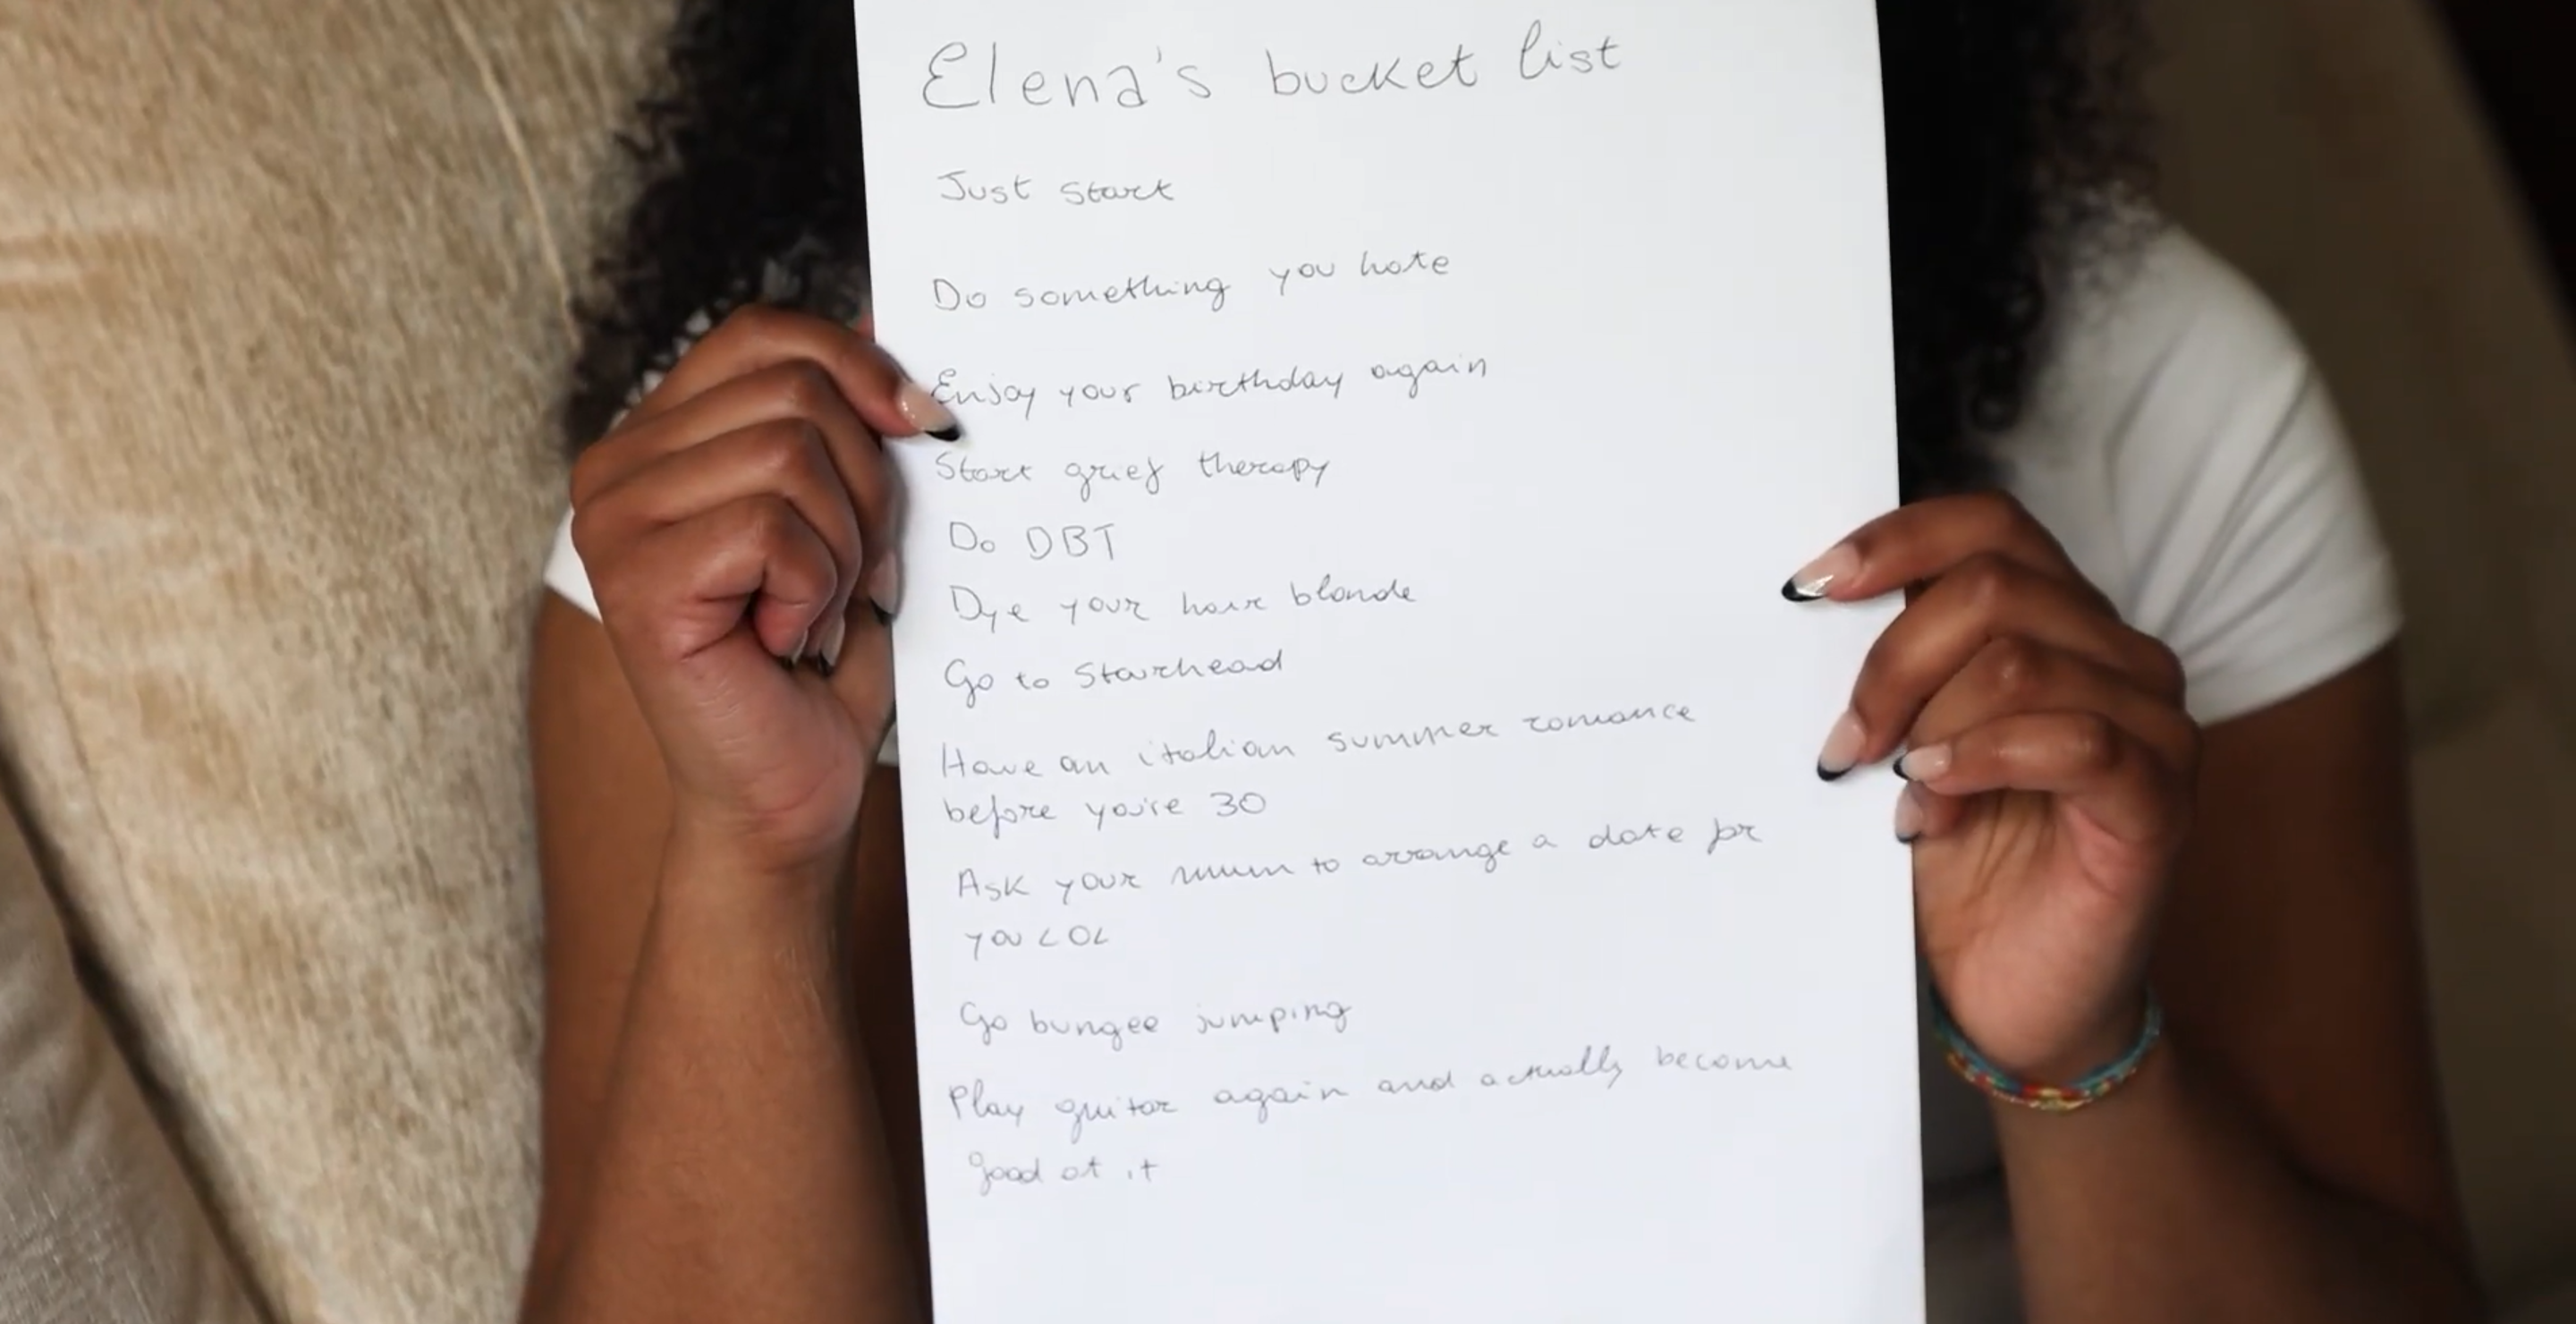 Elena's bucket list
Just start
Do something you hate
Enjoy your birthday again
Start grief therapy
Do DBT
Dye your hair blonde
Go to Starhead
Have an italian summer romance
before you're 30
Ask your mum to arrange a date for
you LOL
Go bungee jumping
Play guitar again and actually become
good at it